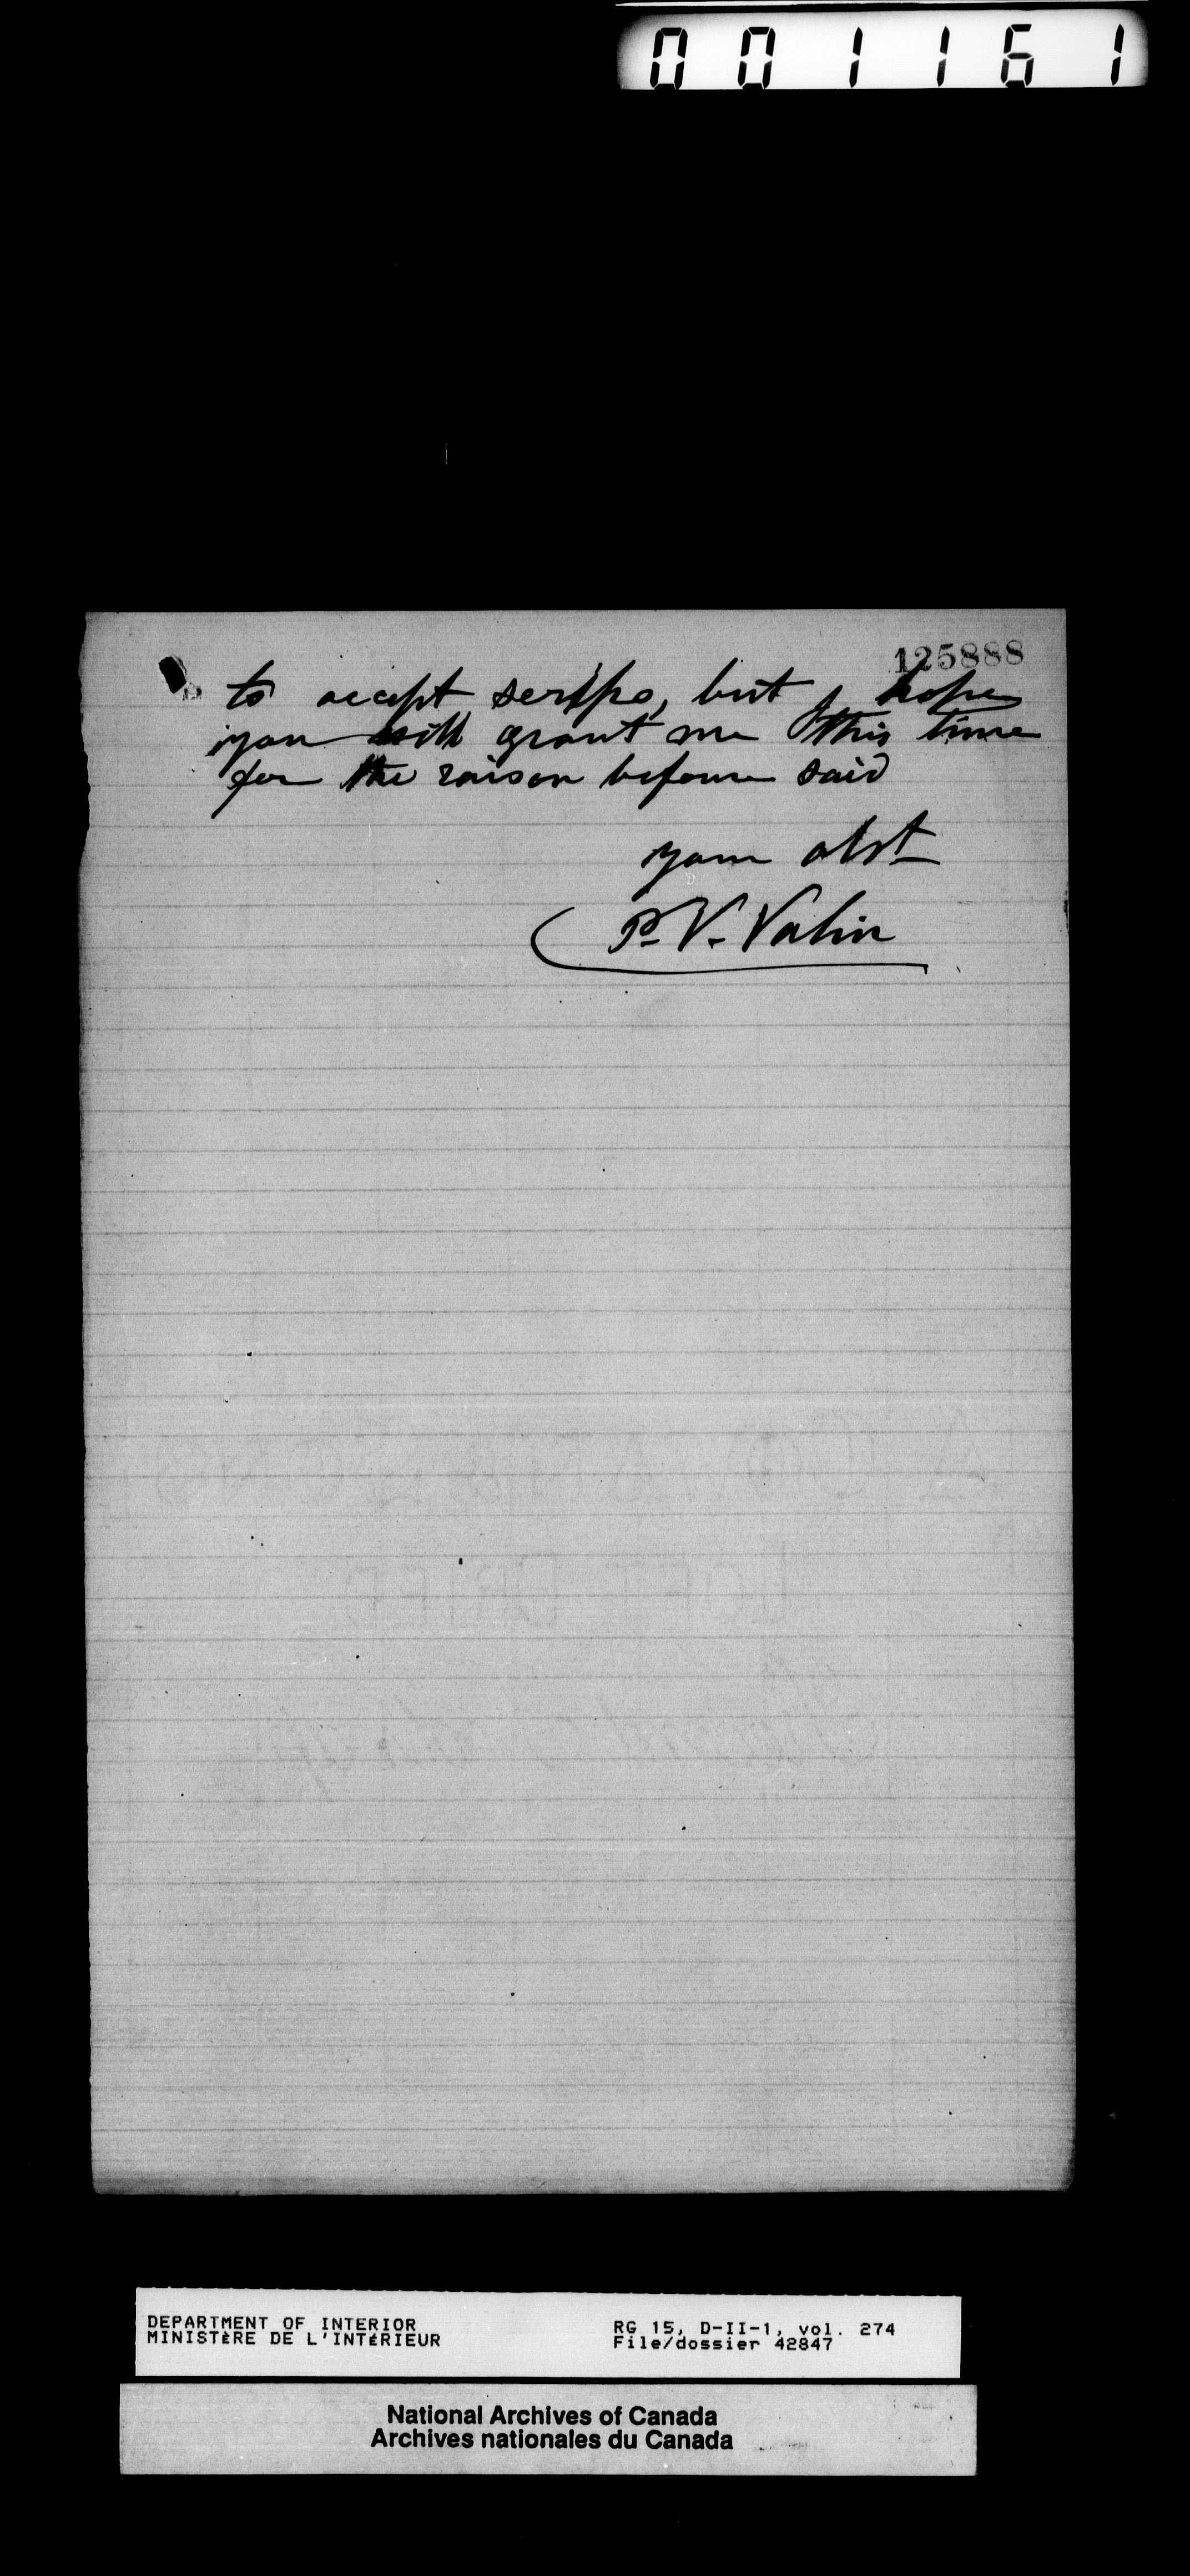 001161
125888
to accept scrips, but I hope
you will grant me this time
for the raison before said
your obst
P. V. Valin
DEPARTMENT OF INTERIOR
MINISTÈRE DE L'INTÉRIEUR
RG 15, D-II-1, vol. 274
File/dossier 42847
National Archives of Canada
Archives nationales du Canada